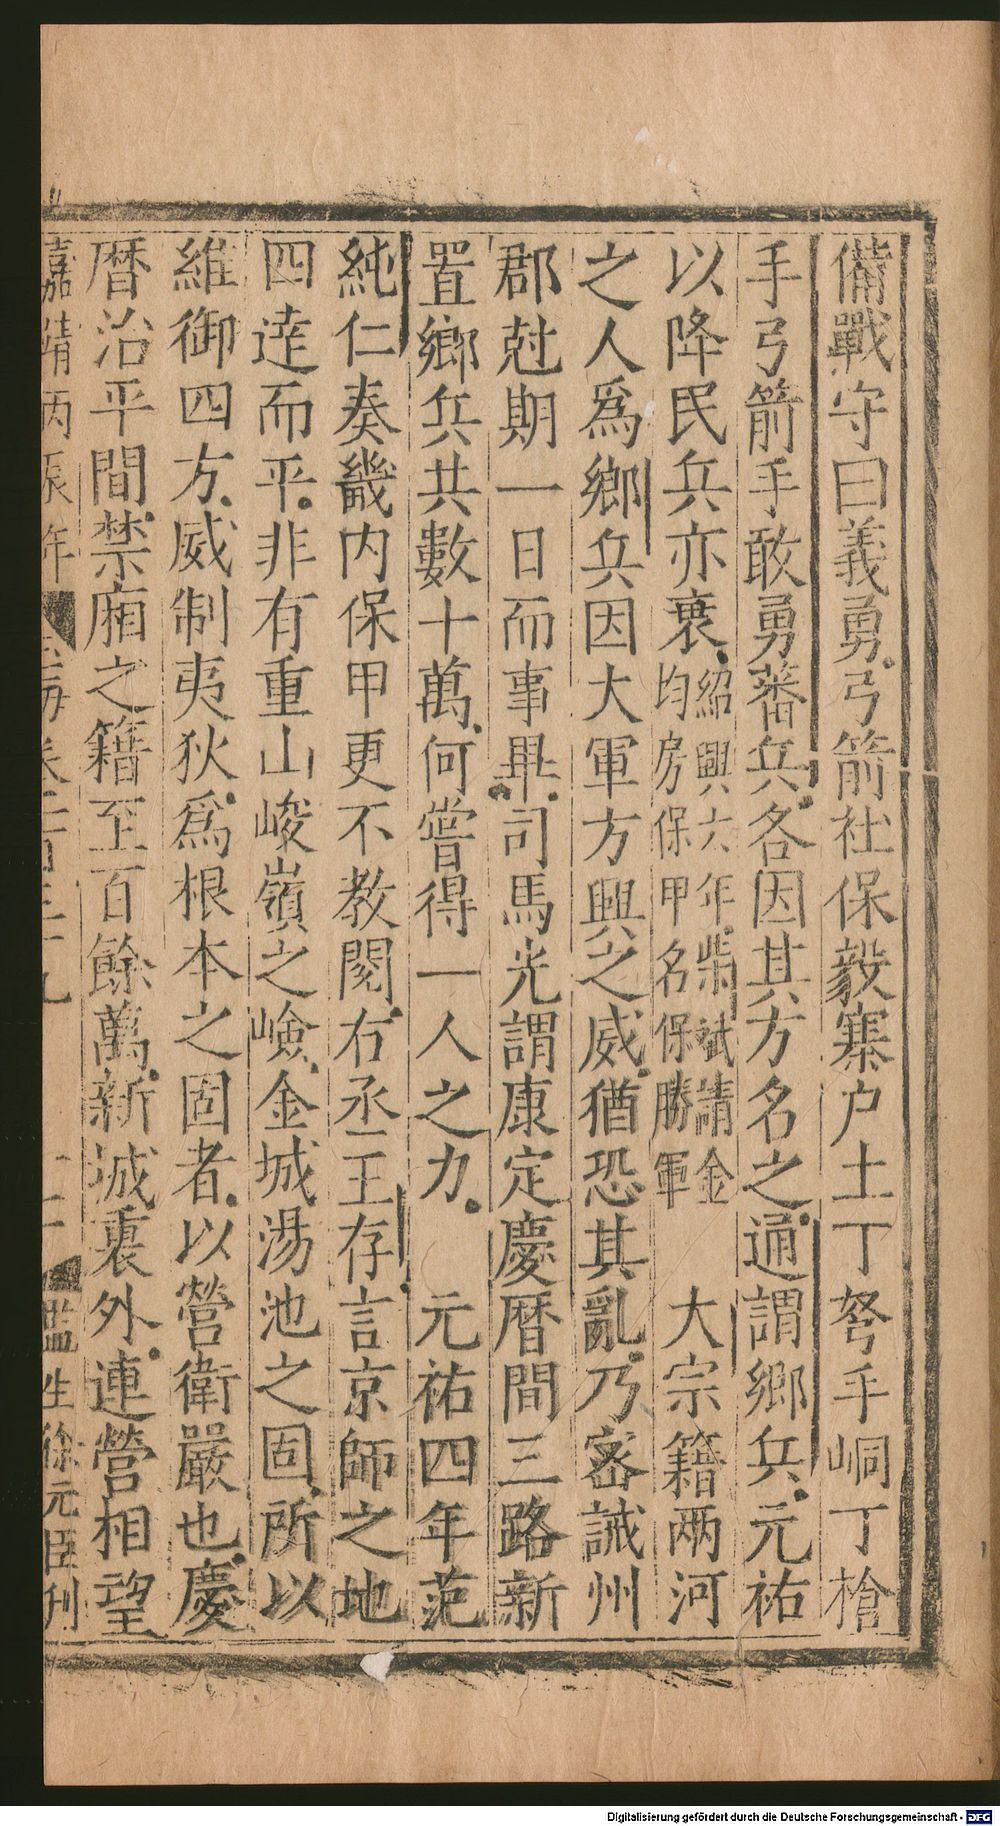 備戰守曰義勇弓箭社保毅寨户土丁弩手峒丁槍
手弓箭手敢勇蕃兵各因其方名之通謂鄉兵元祐
以降民兵亦衰紹興六年柴斌請金均房保甲名保勝軍　大宗籍兩河
之人爲鄉兵因大軍方興之威猶恐其亂乃密諴州
郡尅期一日而事畢司馬光謂康定慶曆間三路新
置鄉兵共數十萬何嘗得一人之力　元祐四年范
純仁奏畿内保甲更不教閱右丞王存言京師之地
四逹而平非有重山峻嶺之嶮金城湯池之固所以
維御四方威制夷狄爲根本之固者以營衛嚴也慶
曆治平間禁廂之籍至百餘萬新城裏外連營相望
嘉靖丙辰年　玉海卷一百三十九　監生徐元臣刊
Digitalisierung gefördert durch die Deutsche Forschungsgemeinschaft - DFG